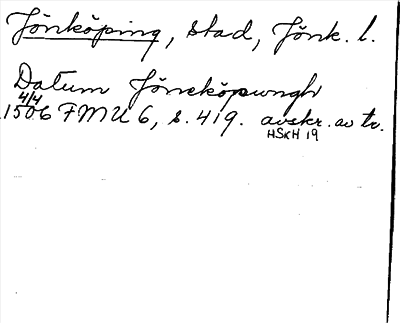 Jönköping, stad, Jönk. l.
Datum Jöneköpungh
4/4
1506 FMU 6, s. 419. avskr. av tr.
HSkH 19